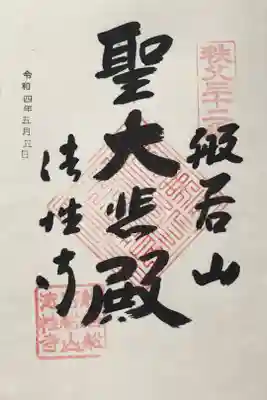 秩父三十二番
般若山
聖大悲殿
法性寺
令和四年五月五日